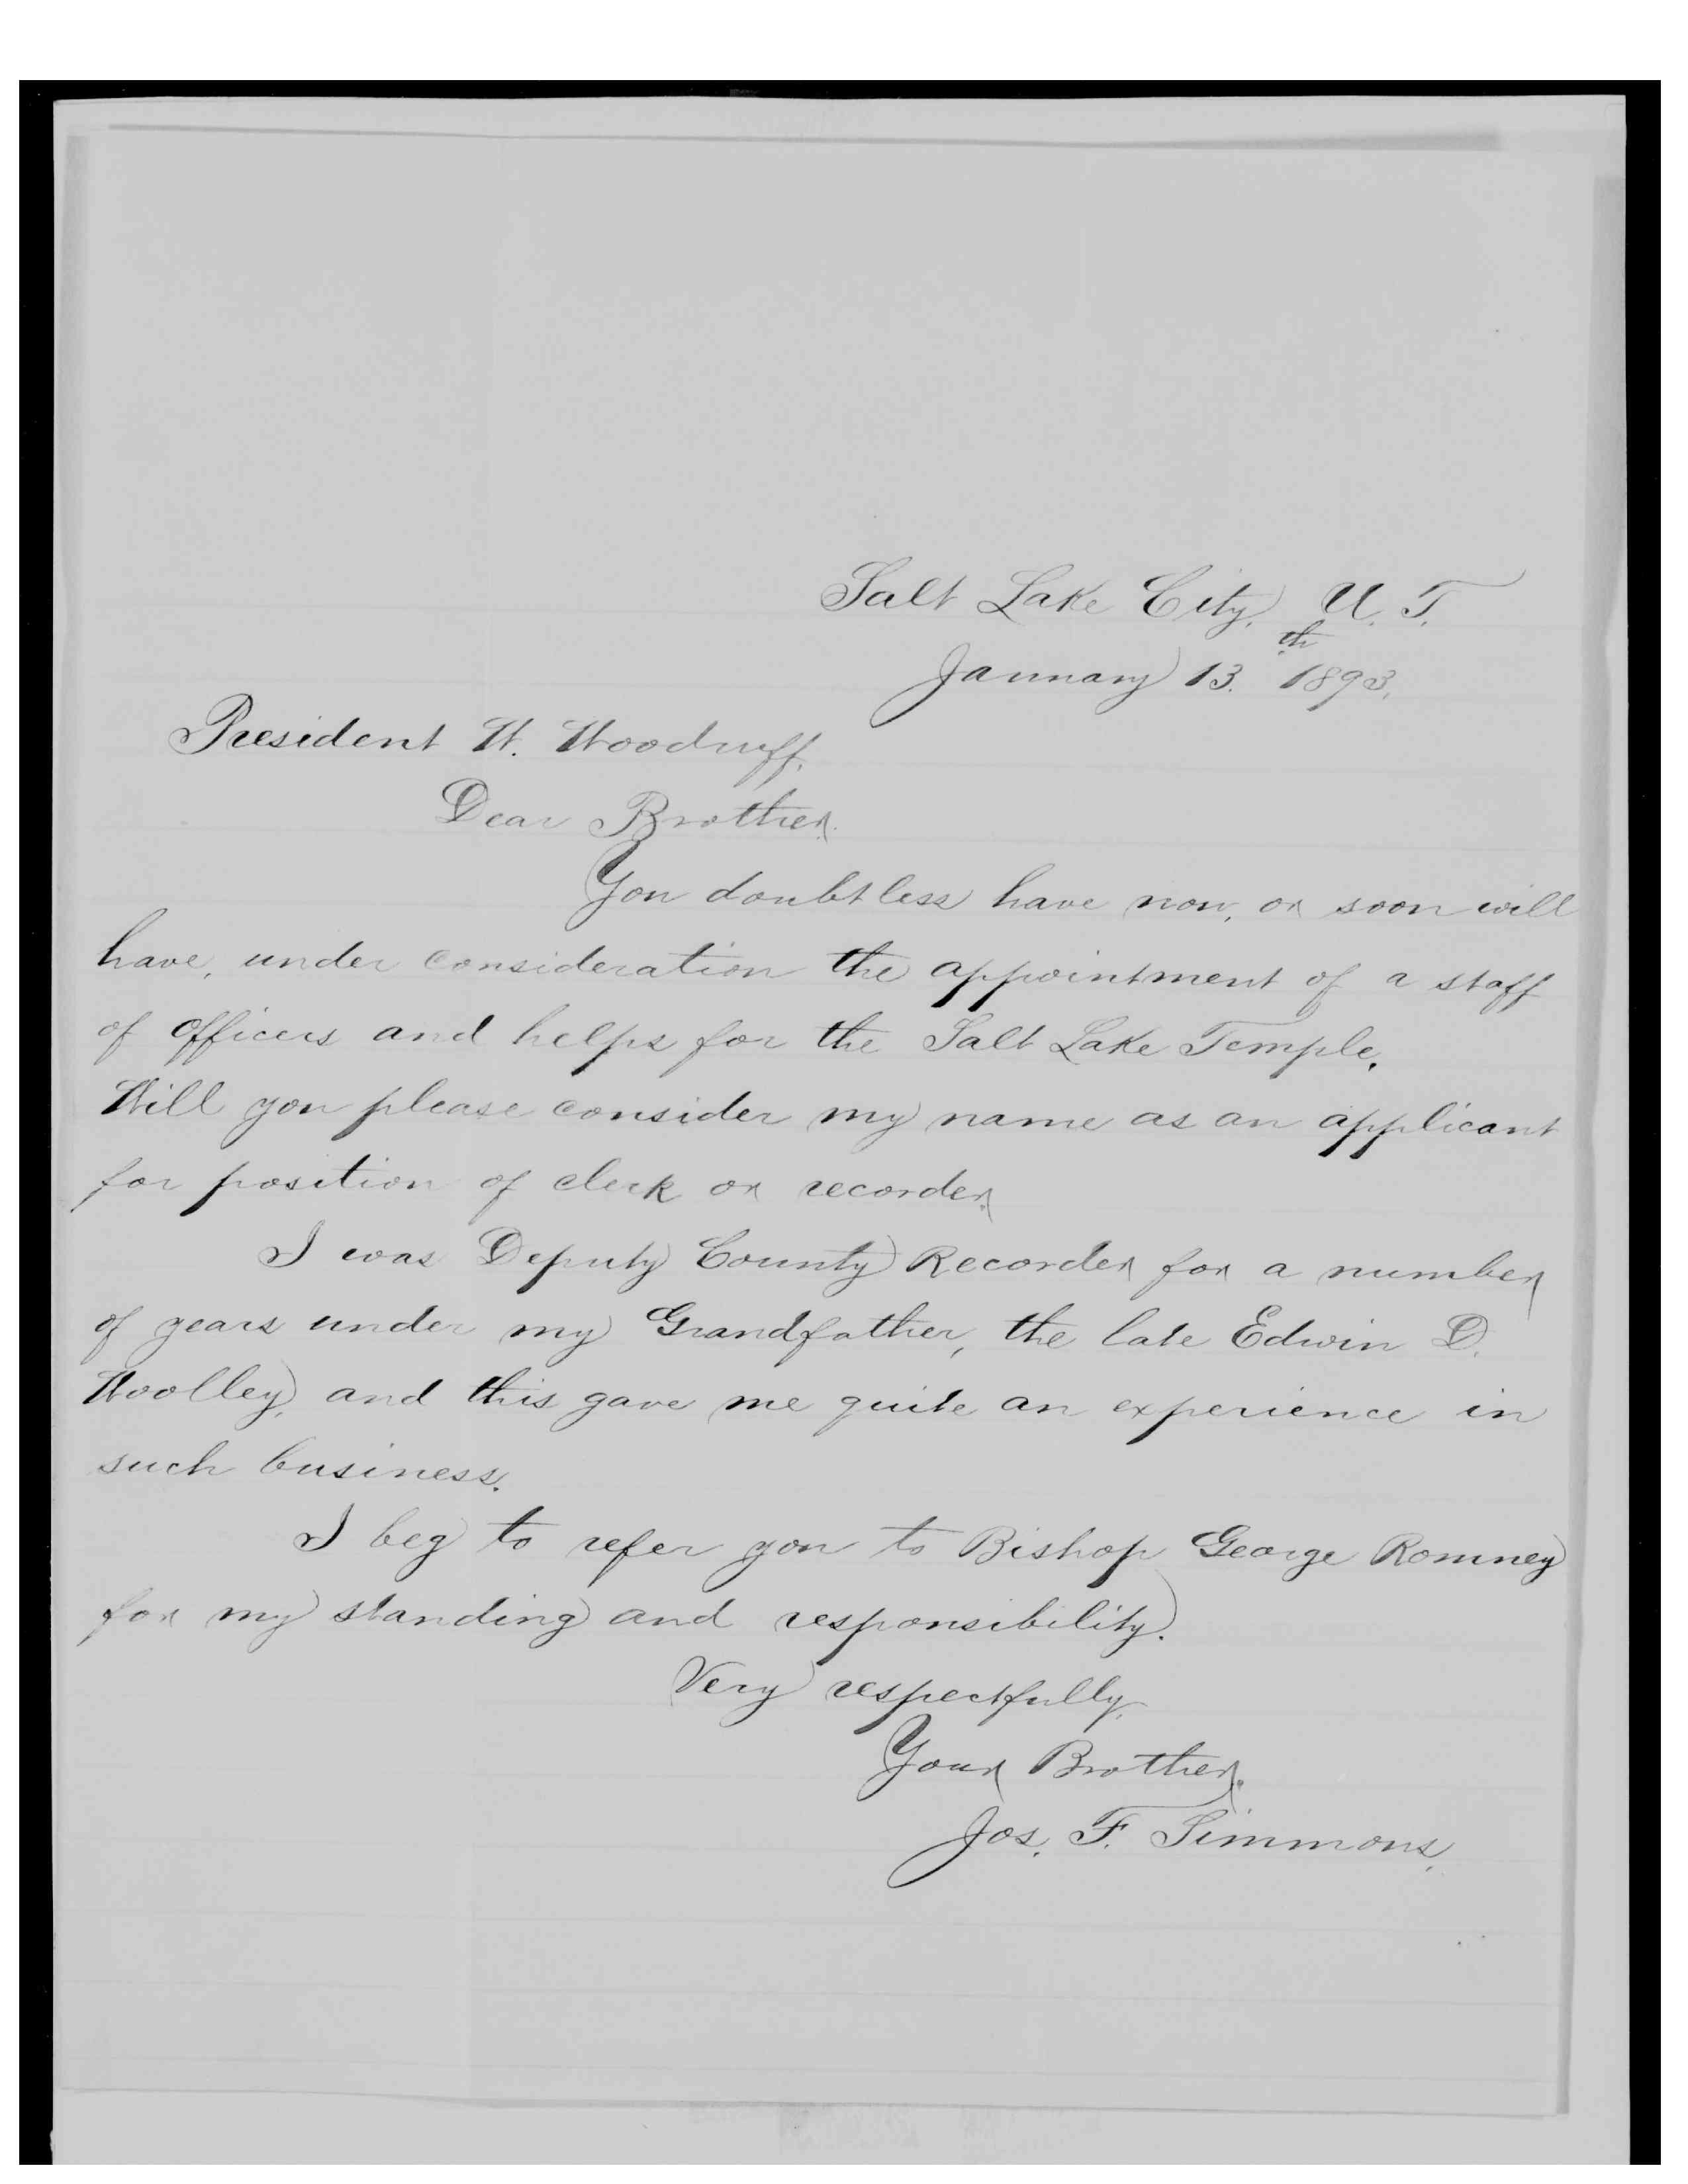 Salt Lake City, U. T.
January 13.th 1893.
President W. Woodruff.
Dear Brother.
You doubtless have now, or soon will
have, under consideration the appointment of a staff
of officers and helps for the Salt Lake Temple.
Will you please consider my name as an applicant
for position of clerk or recorder.
I was Deputy County Recorder for a number
of years under my Grandfather, the late Edwin D.
Woolley, and this gave me quite an experience in
such business.
I beg to refer you to Bishop George Romney
for my standing and responsibility.
Very respectfully,
Your Brother.
Jos. F. Simmons.